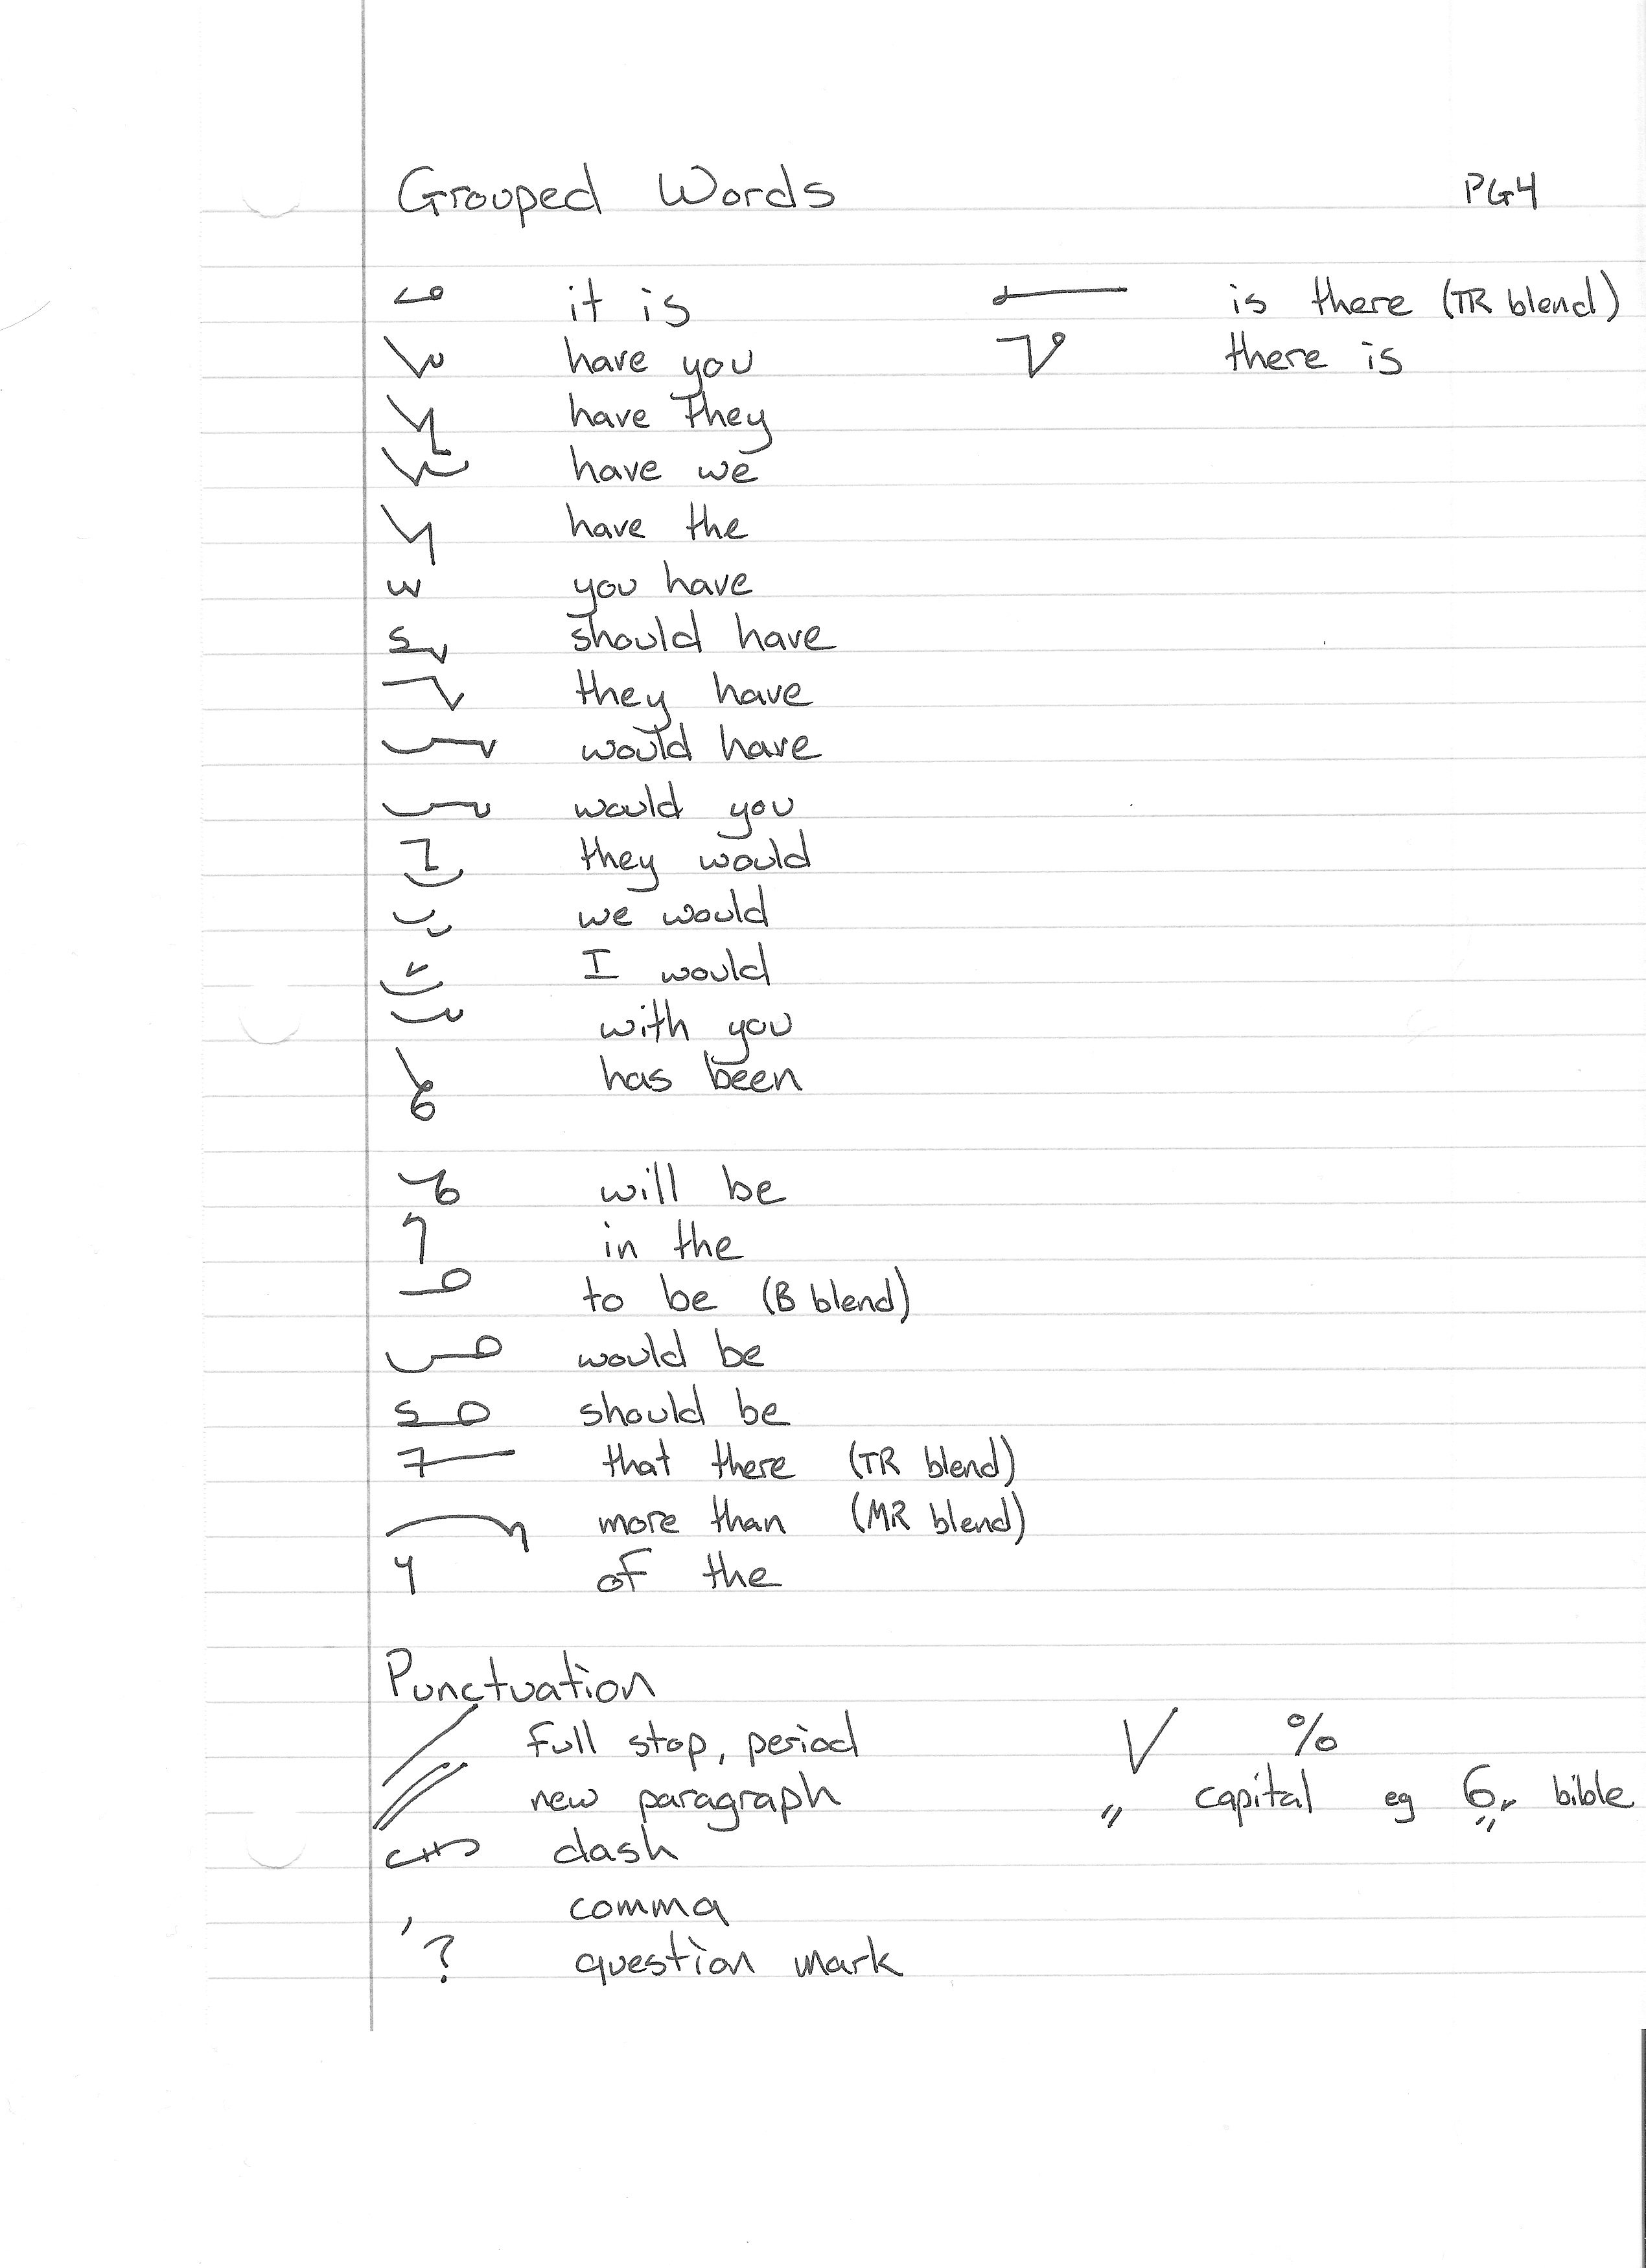 Grouped Words PG4
it is is there (TR blend)
have you there is
have they
have we
have the
you have
should have
they have
would have
would you
they would
we would
I would
with you
has been
will be
in the
to be (B blend)
would be
should be
that there (TR blend)
more than (MR blend)
of the
Punctuation
full stop, period %
new paragraph capital eg bible
dash
, comma
? question mark